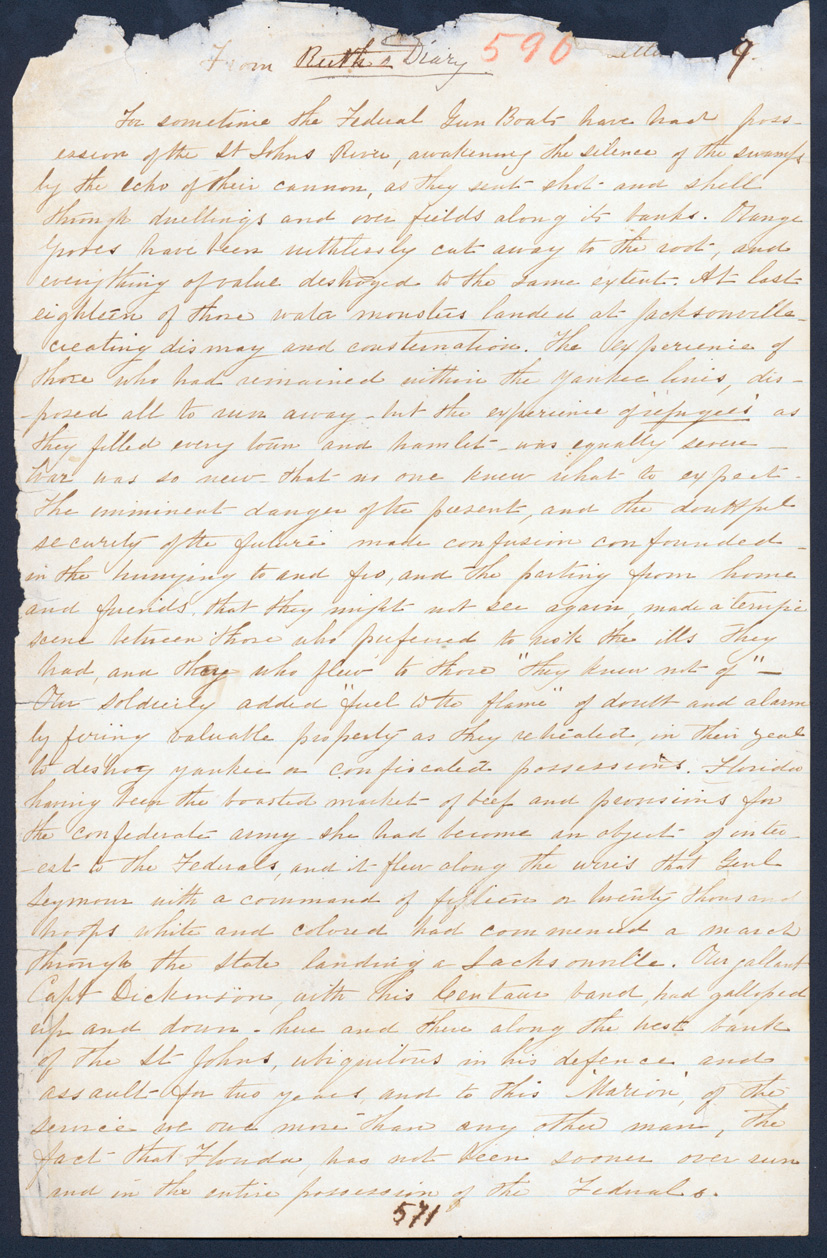 From Ruth's Diary 590 9.
For sometime the Federal Gun Boats have had poss-
ession of the St Johns River, awakening the silence of the swamps
by the echo of their cannon, as they sent shot and shell
through dwellings and over fields along its banks. Orange
Groves have been ruthlessly cut away to the root, and
everything of value destroyed to the same extent. At last
eighteen of those water monsters landed at Jacksonville-
creating dismay and consternation. The experience of
those who had remained within the Yankee lines, dis-
-posed all to run away - but the experience of 'refugees' as
they filled every town and hamlet - was equally severe -
War was so new that no one knew what to expect -
The imminent danger of the present, and the doubtful
security of the future made confusion confounded -
in the hurrying to and fro, and the parting from home
and friends that they might not see again, made a terrific
scene between those who preferred to risk the ills they
had, and they who flew to those "they knew not of" -
Our soldiery added "fuel to the flame" of doubt and alarm
by firing valuable property as they retreated, in their zeal
to destroy yankee or confiscated possessions. Florida
having been the boasted market of beef and provisions for
the confederate army - she had become an object of inter-
-est to the Federals, and it flew along the wires that Genl
Seymour with a command of fifteen or twenty thousand
troops white and colored had commenced a march
through the state landing a Jacksonville. Our gallant
Capt Dickinson, with his Centaur band, had galloped
up and down - here and there along the west bank
of the St Johns, ubiquitous in his defence and
assault for two years, and to this 'Marion', of the
service we owe more than any other man, the
fact that Florida, has not been sooner over run
and in the entire possession of the Federals.
571